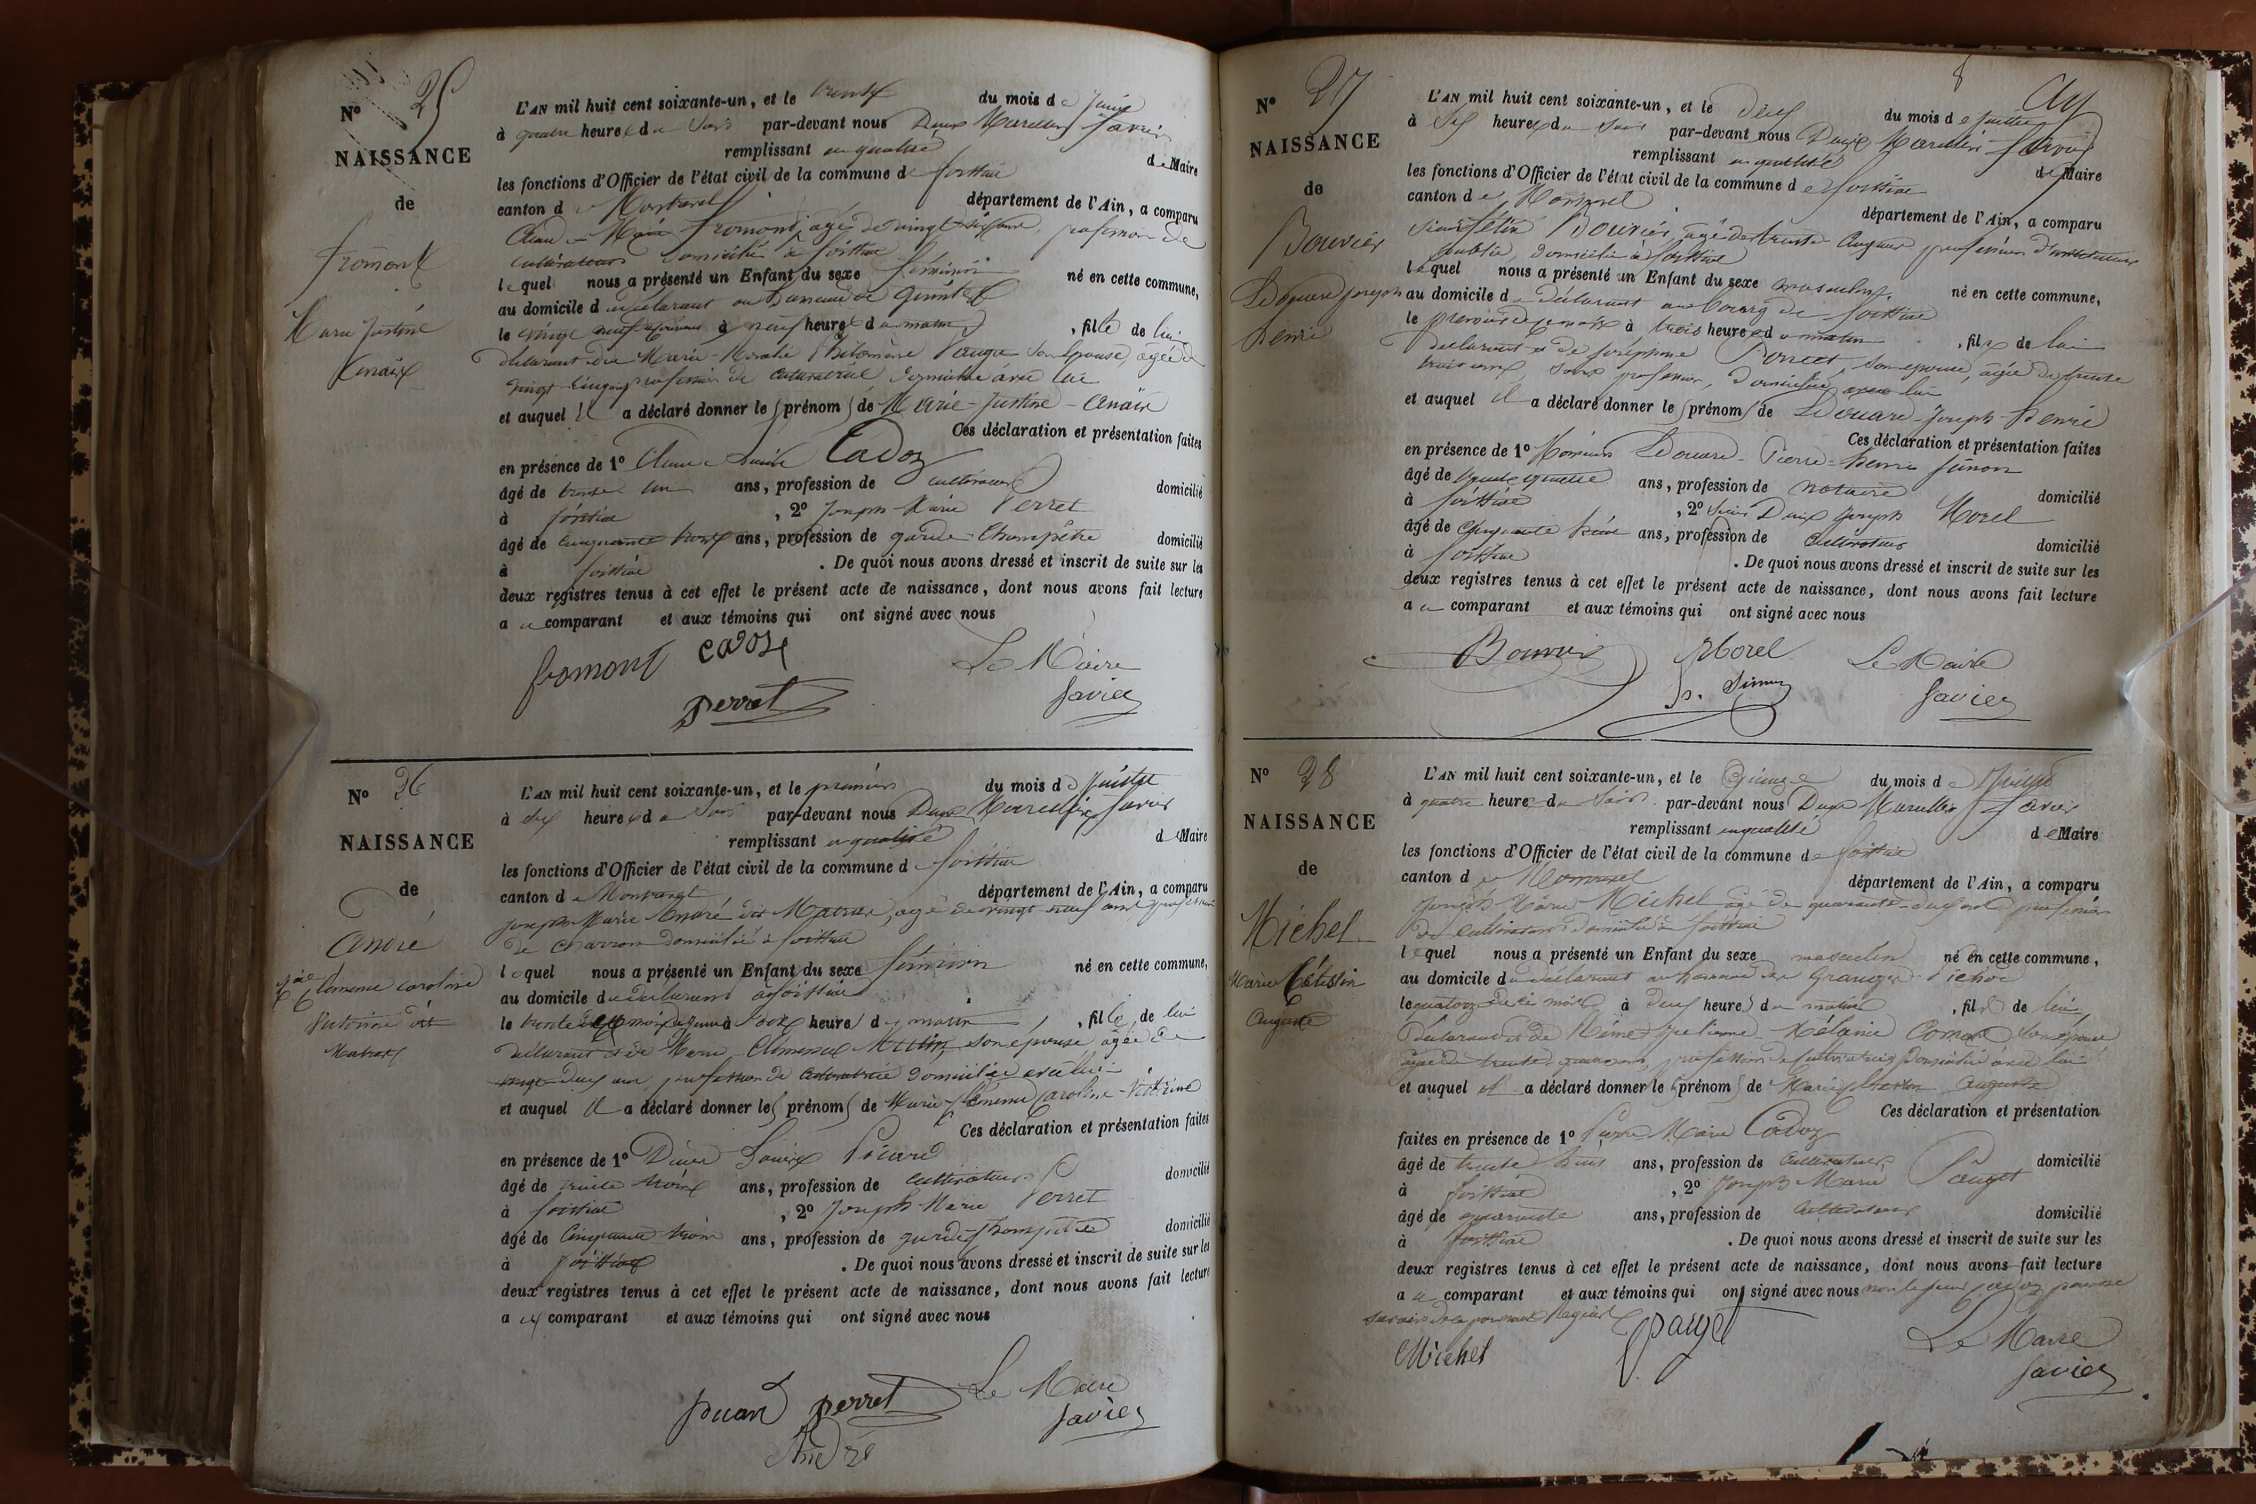 N° 25
NAISSANCE
de
Fromont
Marie Justine
Anaïx
L'AN mil huit cent soixante-un, et le trente du mois de Juin
à quatre heures du Soir par-devant nous Marcellin Favier
remplissant en qualité de Maire
les fonctions d'Officier de l'état civil de la commune de Foissiat
canton de Montrevel département de l'Ain, a comparu
Marie Fromont, âgé de vingt ans, profession de
cultivateur domicilié à Foissiat
lequel nous a présenté un Enfant du sexe féminin né en cette commune,
au domicile du déclarant au hameau de
le vingt neuf à neuf heures du matin, fille de lui
déclarant et de Marie Philomène son épouse, âgée de
vingt cinq profession de cultivatrice domiciliée avec lui
et auquel il a déclaré donner les prénoms de Marie-Justine-Anaïx
Ces déclaration et présentation faites
en présence de 1° Claude Cadoz
âgé de trente un ans, profession de cultivateur domicilié
à Foissiat, 2° Joseph Marie Perret
âgé de cinquante trois ans, profession de garde-Champêtre domicilié
à Foissiat. De quoi nous avons dressé et inscrit de suite sur les
deux registres tenus à cet effet le présent acte de naissance, dont nous avons fait lecture
au comparant et aux témoins qui ont signé avec nous
fromont cadoz Le Maire
perret Favier
N° 26
NAISSANCE
de
André
Clémence Caroline
Victorine dit
L'AN mil huit cent soixante-un, et le premier du mois de Juillet
à six heures du Soir par-devant nous Marcellin Favier
remplissant en qualité de Maire
les fonctions d'Officier de l'état civil de la commune de Foissiat
canton de Montrevel département de l'Ain, a comparu
Joseph Marie André dit, âgé de vingt neuf ans profession
de charron domicilié à Foissiat
lequel nous a présenté un Enfant du sexe féminin né en cette commune,
au domicile du déclarant à Foissiat
le trente du mois de Juin à heures du matin, fille de lui
déclarant et de Marie Clémence son épouse âgée de
vingt deux ans, profession de cultivatrice domiciliée avec lui
et auquel il a déclaré donner les prénoms de Marie-Clémence Caroline-Victorine
Ces déclaration et présentation faites
en présence de 1° Denis Louis
âgé de trente trois ans, profession de cultivateur domicilié
à Foissiat, 2° Joseph-Marie Perret
âgé de Cinquante trois ans, profession de garde-champêtre domicilié
à Foissiat. De quoi nous avons dressé et inscrit de suite sur les
deux registres tenus à cet effet le présent acte de naissance, dont nous avons fait lecture
au comparant et aux témoins qui ont signé avec nous
perret Le Maire
André Favier
N° 27
NAISSANCE
de
Bouvier
Edouard Joseph
Henri
L'AN mil huit cent soixante-un, et le deux du mois de Juillet
à six heures du soir par-devant nous Marcellin Favier
remplissant en qualité de Maire
les fonctions d'Officier de l'état civil de la commune de Foissiat
canton de Montrevel département de l'Ain, a comparu
Bouvier, âgé de trente cinq ans profession d'instituteur
public, domicilié à Foissiat
lequel nous a présenté un Enfant du sexe masculin, né en cette commune,
au domicile du déclarant au bourg de Foissiat
le premier de ce mois à trois heures du matin, fils de lui
déclarant et de Joséphine Poncet, son épouse, âgée de trente
trois ans, sans profession, domiciliée avec lui
et auquel il a déclaré donner les prénoms de Edouard-Joseph-Henri
Ces déclaration et présentation faites
en présence de 1° Monsieur Edouard-Pierre-Henri Simon
âgé de quatre ans, profession de notaire domicilié
à Foissiat, 2° Joseph Morel
âgé de Cinquante huit ans, profession de cultivateur domicilié
à Foissiat. De quoi nous avons dressé et inscrit de suite sur les
deux registres tenus à cet effet le présent acte de naissance, dont nous avons fait lecture
au comparant et aux témoins qui ont signé avec nous
Bouvier Morel Le Maire
h. Simon Favier
N° 28
NAISSANCE
de
Michel
Marie Célestin
Auguste
L'AN mil huit cent soixante-un, et le Quinze du mois de Juillet
à quatre heures du Soir par-devant nous Marcellin Favier
remplissant en qualité de Maire
les fonctions d'Officier de l'état civil de la commune de Foissiat
canton de Montrevel département de l'Ain, a comparu
Joseph Marie Michel âgé de quarante-deux ans profession
de cultivateur domicilié à Foissiat
lequel nous a présenté un Enfant du sexe masculin né en cette commune,
au domicile du déclarant au hameau
le quatorze de ce mois à deux heures du matin, fils de lui
déclarant et de Mélanie son épouse
âgée de trente quatre ans, profession de cultivatrice domiciliée avec lui
et auquel il a déclaré donner les prénoms de Marie Célestin Auguste
Ces déclaration et présentation
faites en présence de 1° Pierre Marie Cadoz
âgé de trente huit ans, profession de cultivateur domicilié
à Foissiat, 2° Joseph Marie Pauget
âgé de quarante ans, profession de cultivateur domicilié
à Foissiat. De quoi nous avons dressé et inscrit de suite sur les
deux registres tenus à cet effet le présent acte de naissance, dont nous avons fait lecture
au comparant et aux témoins qui ont signé avec nous non le sieur Cadoz pour ne
savoir de ce par nous requis
Michel pauget Le Maire
Favier